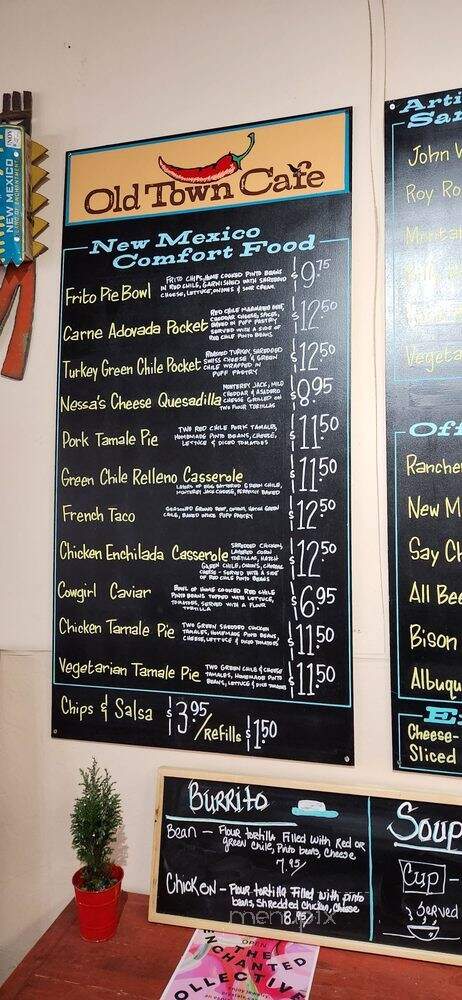 NEW MEXICO
Old Town Cafe
New Mexico
Comfort Food
Frito Pie Bowl
FRITO CHIPS, HOME COOKED PINTO BEANS
IN RED CHILE, GARNISHED WITH SHREDDED
CHEESE, LETTUCE, ONIONS & SOUR CREAM
$9.75
Carne Adovada Pocket
RED CHILE MARINATED BEEF,
CHEDDAR CHEESE,
BAKED IN PUFF PASTRY
SERVED WITH A SIDE OF
RED CHILE PINTO BEANS
$12.50
Turkey Green Chile Pocket
ROASTED TURKEY, SHREDDED
SWISS CHEESE & GREEN
CHILE WRAPPED IN
PUFF PASTRY
$12.50
Nessa's Cheese Quesadilla
MONTEREY JACK, MILD
CHEDDAR & ASADERO
CHEESE GRILLED ON
TWO FLOUR TORTILLAS
$8.95
Pork Tamale Pie
TWO RED CHILE PORK TAMALES,
HOMEMADE PINTO BEANS, CHEESE,
LETTUCE & DICED TOMATOES
$11.50
Green Chile Relleno Casserole
LAYERS OF EGG BATTERED GREEN CHILE,
MONTEREY JACK CHEESE, PERFECTLY BAKED
$11.50
French Taco
SEASONED GROUND BEEF, ONIONS, HATCH GREEN
CHILE, BAKED INSIDE PUFF PASTRY
$12.50
Chicken Enchilada Casserole
SHREDDED CHICKEN,
LAYERED CORN
TORTILLAS, HATCH
GREEN CHILE, ONIONS, CHEDDAR
CHEESE - SERVED WITH A SIDE
OF RED CHILE PINTO BEANS
$12.50
Cowgirl Caviar
BOWL OF HOME COOKED RED CHILE
PINTO BEANS TOPPED WITH LETTUCE,
TOMATOES, SERVED WITH A FLOUR
TORTILLA
$6.95
Chicken Tamale Pie
TWO GREEN SHREDDED CHICKEN
TAMALES, HOMEMADE PINTO BEANS,
CHEESE, LETTUCE & DICED TOMATOES
$11.50
Vegetarian Tamale Pie
TWO GREEN CHILE & CHEESE
TAMALES, HOMEMADE PINTO
BEANS, LETTUCE & DICED TOMATOES
$11.50
Chips & Salsa $3.95/Refills $1.50
Arti
San
John W
Roy Ro
Vegeta
Off
Ranche
New M
Say Ch
All Bee
Bison
Albuqu
Cheese-
Sliced
BURRITO
Bean - Flour tortilla Filled With Red or
green Chile, Pinto beans, Cheese
7.95/
Chicken - Flour tortilla Filled with pinto
beans, Shredded Chicken, Cheese
8.95/
Soup
Cup -
Served
menupix
OPEN
THE
ENCHANTED
COLLECTIVE